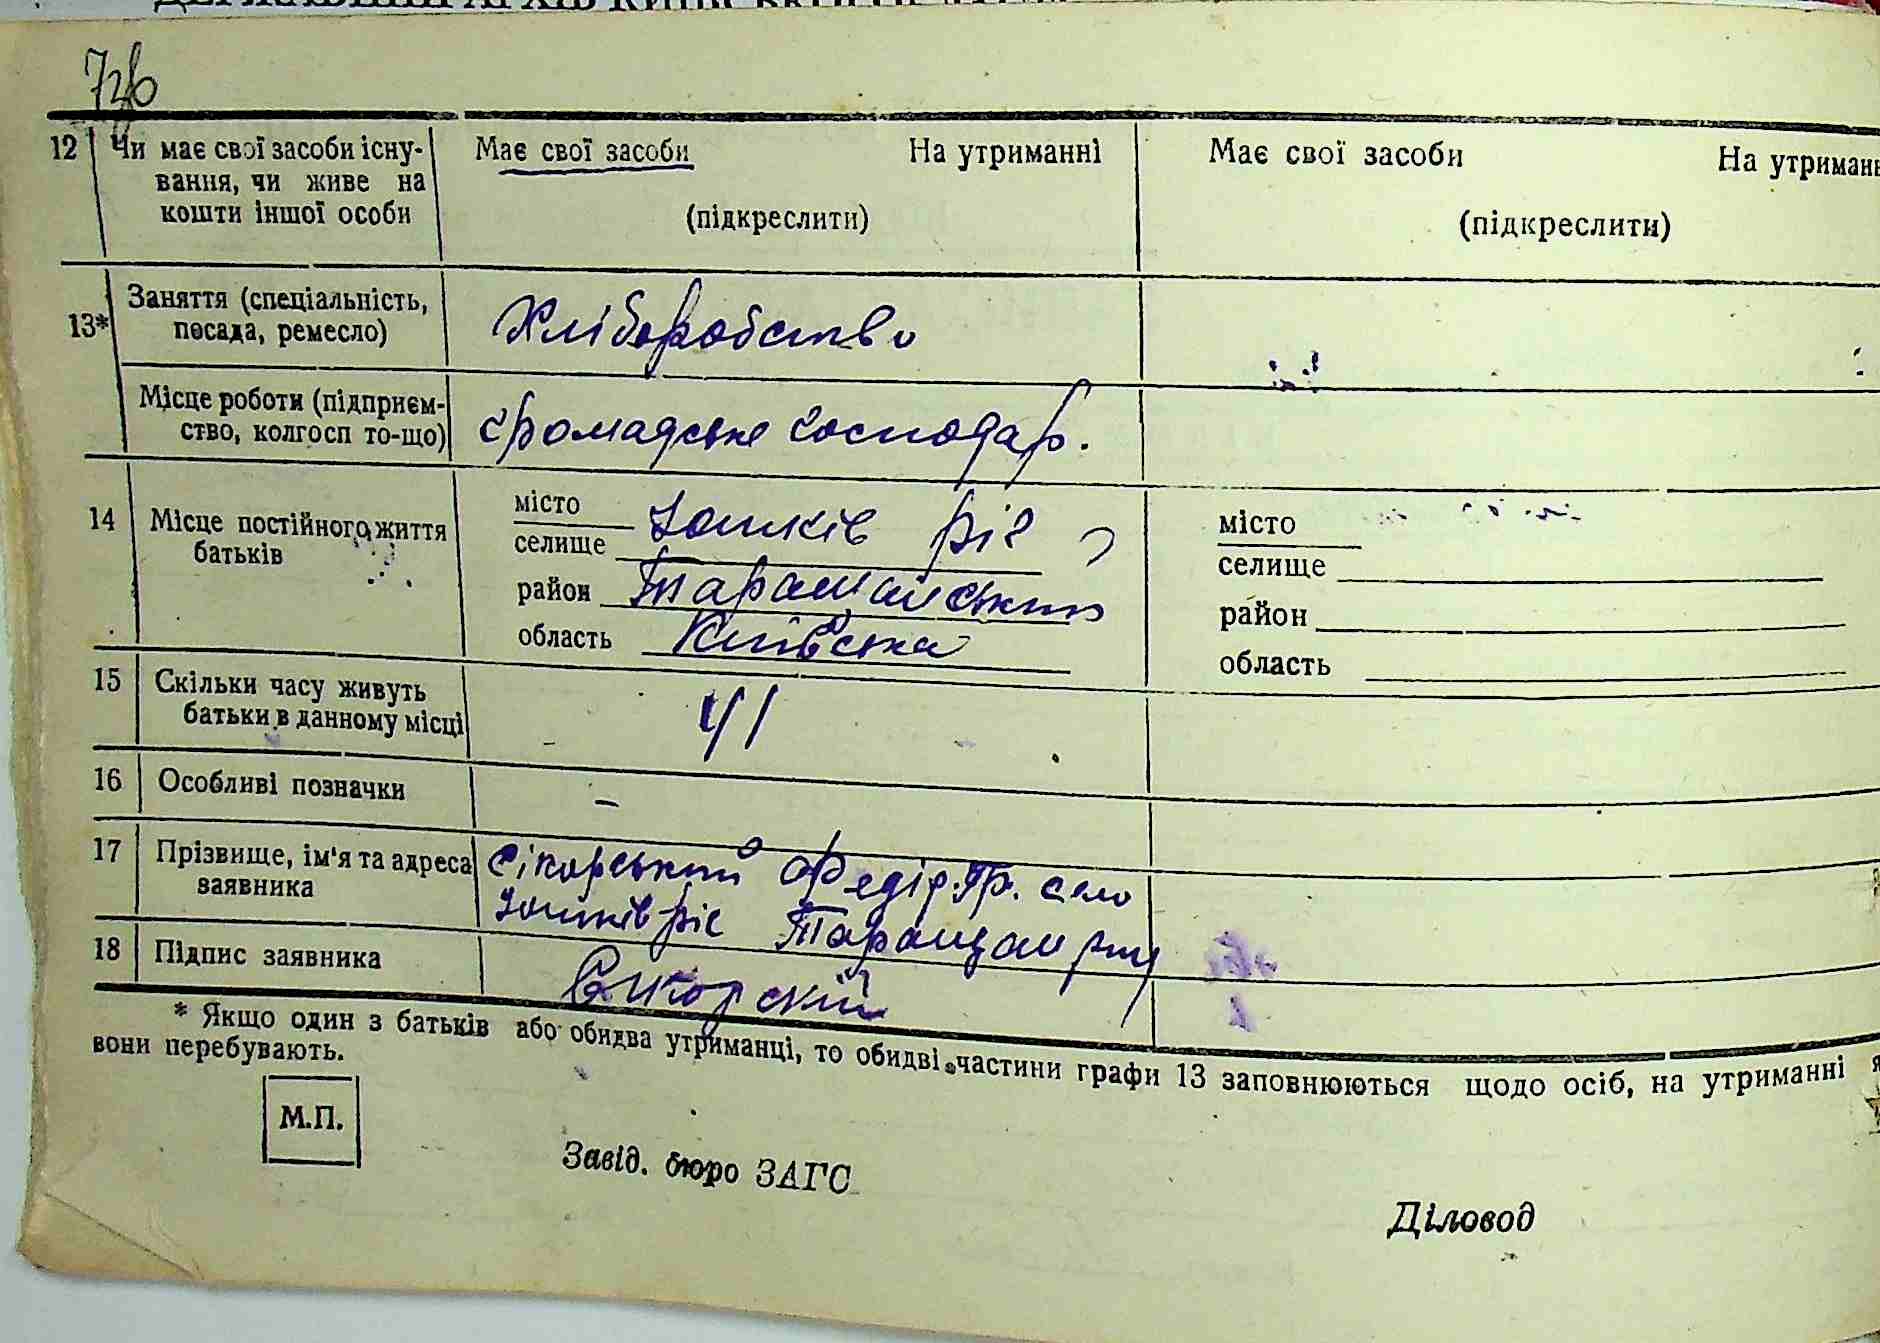 12 Чи має свої засоби існу- Має свої засоби На утриманні Має свої засоби На утриман
вання, чи живе на
кошти іншої особи (підкреслити) (підкреслити)
13* Заняття (спеціальність,
посада, ремесло) Хліборобство
Місце роботи (підприєм-
ство, колгосп то-що) громадське господар.
14 Місце постійного життя
батьків
місто місто
селище Юшків ріг селище
район Таращанський район
область Київська область
15 Скільки часу живуть
батьки в данному місці 41
16 Особливі позначки –
17 Прізвище, ім'я та адреса
заявника
Сікорський Федір Гр. село
Юшків ріг Таращан
18 Підпис заявника Сікорскій
* Якщо один з батьків або обидва утриманці, то обидві частини графи 13 заповнюються щодо осіб, на утриманні
вони перебувають.
М.П.
Завід. бюро ЗАГС
Діловод